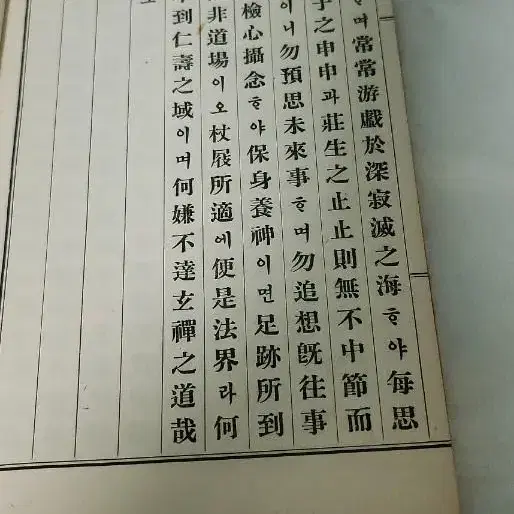 ᄒᆞ며常常游戱於深寂滅之海ᄒᆞ야每思
子之申申과莊生之止止則無不中節而
이니勿預思未來事ᄒᆞ며勿追想旣往事
檢心攝念ᄒᆞ야保身養神이면足跡所到
非道場이오杖屐所適에便是法界라何
到仁壽之域이며何嫌不達玄禪之道哉